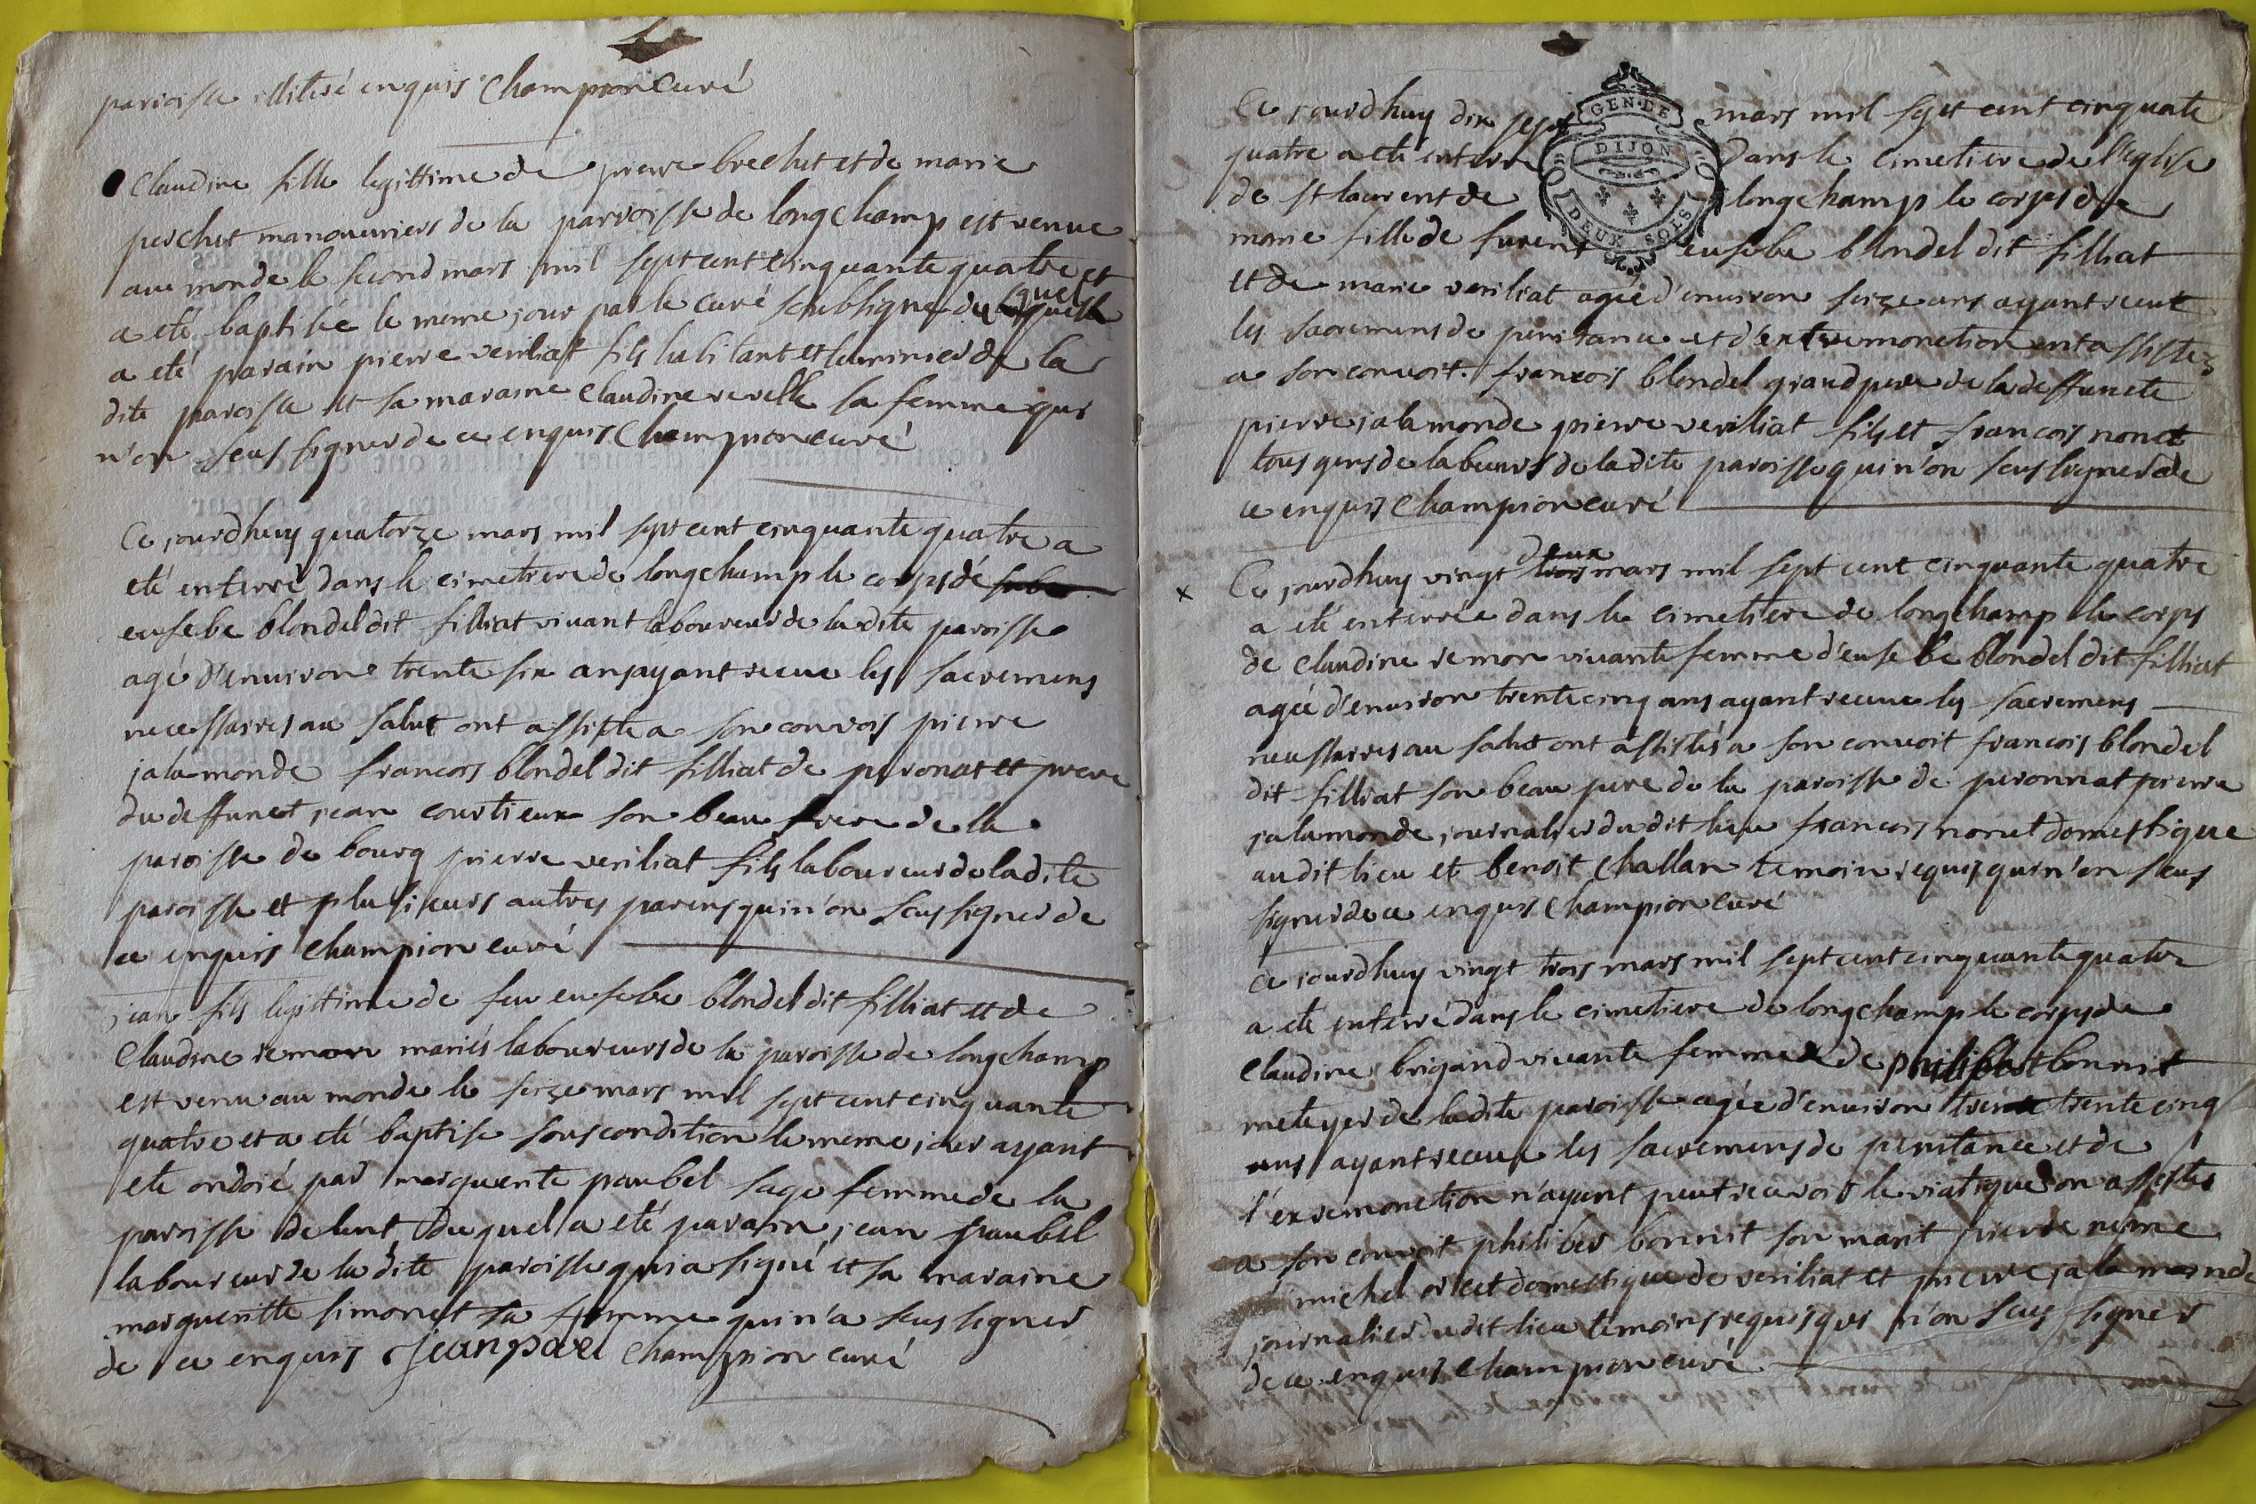 paroisse illiteré enquis Champion Curé
Claudine fille legittime de pierre brechet et de marie
perchet manouvriers de la parroisse de longchamp est venue
au monde le second mars mil sept cent cinquante quatre et
a eté baptisée le meme jour par le curé soubsigne duquel
a eté parain pierre veriliat fils habitant et luminier de la
dite paroisse et sa maraine Claudine revelle sa femme qui
n'on seus signer de ce enquis Champion curé
Ce jourdhuy quatorze mars mil sept cent cinquante quatre a
eté enterré dans le cimetiere de longchamp le corps de
eusebe blondel dit filliat vivant laboureur de la dite paroisse
agé d'environ trente six ans ayant receue les sacremens
necessaires au salut ont assisté a son convois pierre
jalamonde francois blondel dit filliat de peronat et pere
du deffunct jean courtieux son beau frere de la
paroisse de bourg pierre veriliat fils laboureur de la dite
paroisse et plusieurs autres parens qui n'on seus signer de
ce enquis Champion curé
jean fils legittime de feu eusebe blondel dit filliat et de
Claudine remon mariés laboureurs de la paroisse de longchamp
est venu au monde le seize mars mil sept cent cinquante
quatre et a eté baptise sous condition le meme jour ayant
eté ondoié par marguerite paubel sage femme de la
paroisse de lent duquel a eté parain jean paubel
laboureur de la dite paroisse qui a signé et sa maraine
marguerite simonet sa femme qui n'a seus signer
de ce enquis Champion curé
Ce jourdhuy dix sept mars mil sept cent cinquate
GEN. DE
DIJON
DEUX SOLS
quatre a eté enterré dans le cimetiere de l'eglise
de st laurent de longchamp le corps de
marie fille de eusebe blondel dit filliat
et de marie veriliat agée d'environ seize ans ayant receut
les sacremens de penitance et d'extremonction ont assistez
a son convoit francois blondel grand pere de la deffuncte
pierre jalamonde pierre veriliat fils et francois nonet
tous gens de labeurs de la dite paroisse qui n'on seus signer de
ce enquis Champion curé
x Ce jourdhuy vingt deux mars mil sept cent cinquante quatre
a eté enterrée dans le cimetiere de longchamp le corps
de Claudine remon vivante femme d'eusebe blondel dit filliat
agée d'environ trente cinq ans ayant receue les sacremens
necessaires au salut ont assistés a son convoit francois blondel
dit filliat son beau pere de la paroisse de peronnat pierre
jalamonde journalier du dit lieu francois nonet domestique
au dit lieu et benoit Challan temoin requis qui n'on seus
signer de ce enquis Champion Curé
Ce jourdhuy vingt trois mars mil sept cent cinquante quatre
a eté enterré dans le cimetiere de longchamp le corps de
Claudine brigand vivante femme de philibert bonnit
meteyer de la dite paroisse agée d'environ trente cinq
ans ayant receue les sacremens de penitance et de
l'exremonction n'ayant peut recevoir le viatique on assistés
a son convoit philiber bonnit son marit pierre
michel domestique de veriliat et pierre jalamonde
journalier du dit lieu temoins requis qui n'on seus signer
de ce enquis Champion curé